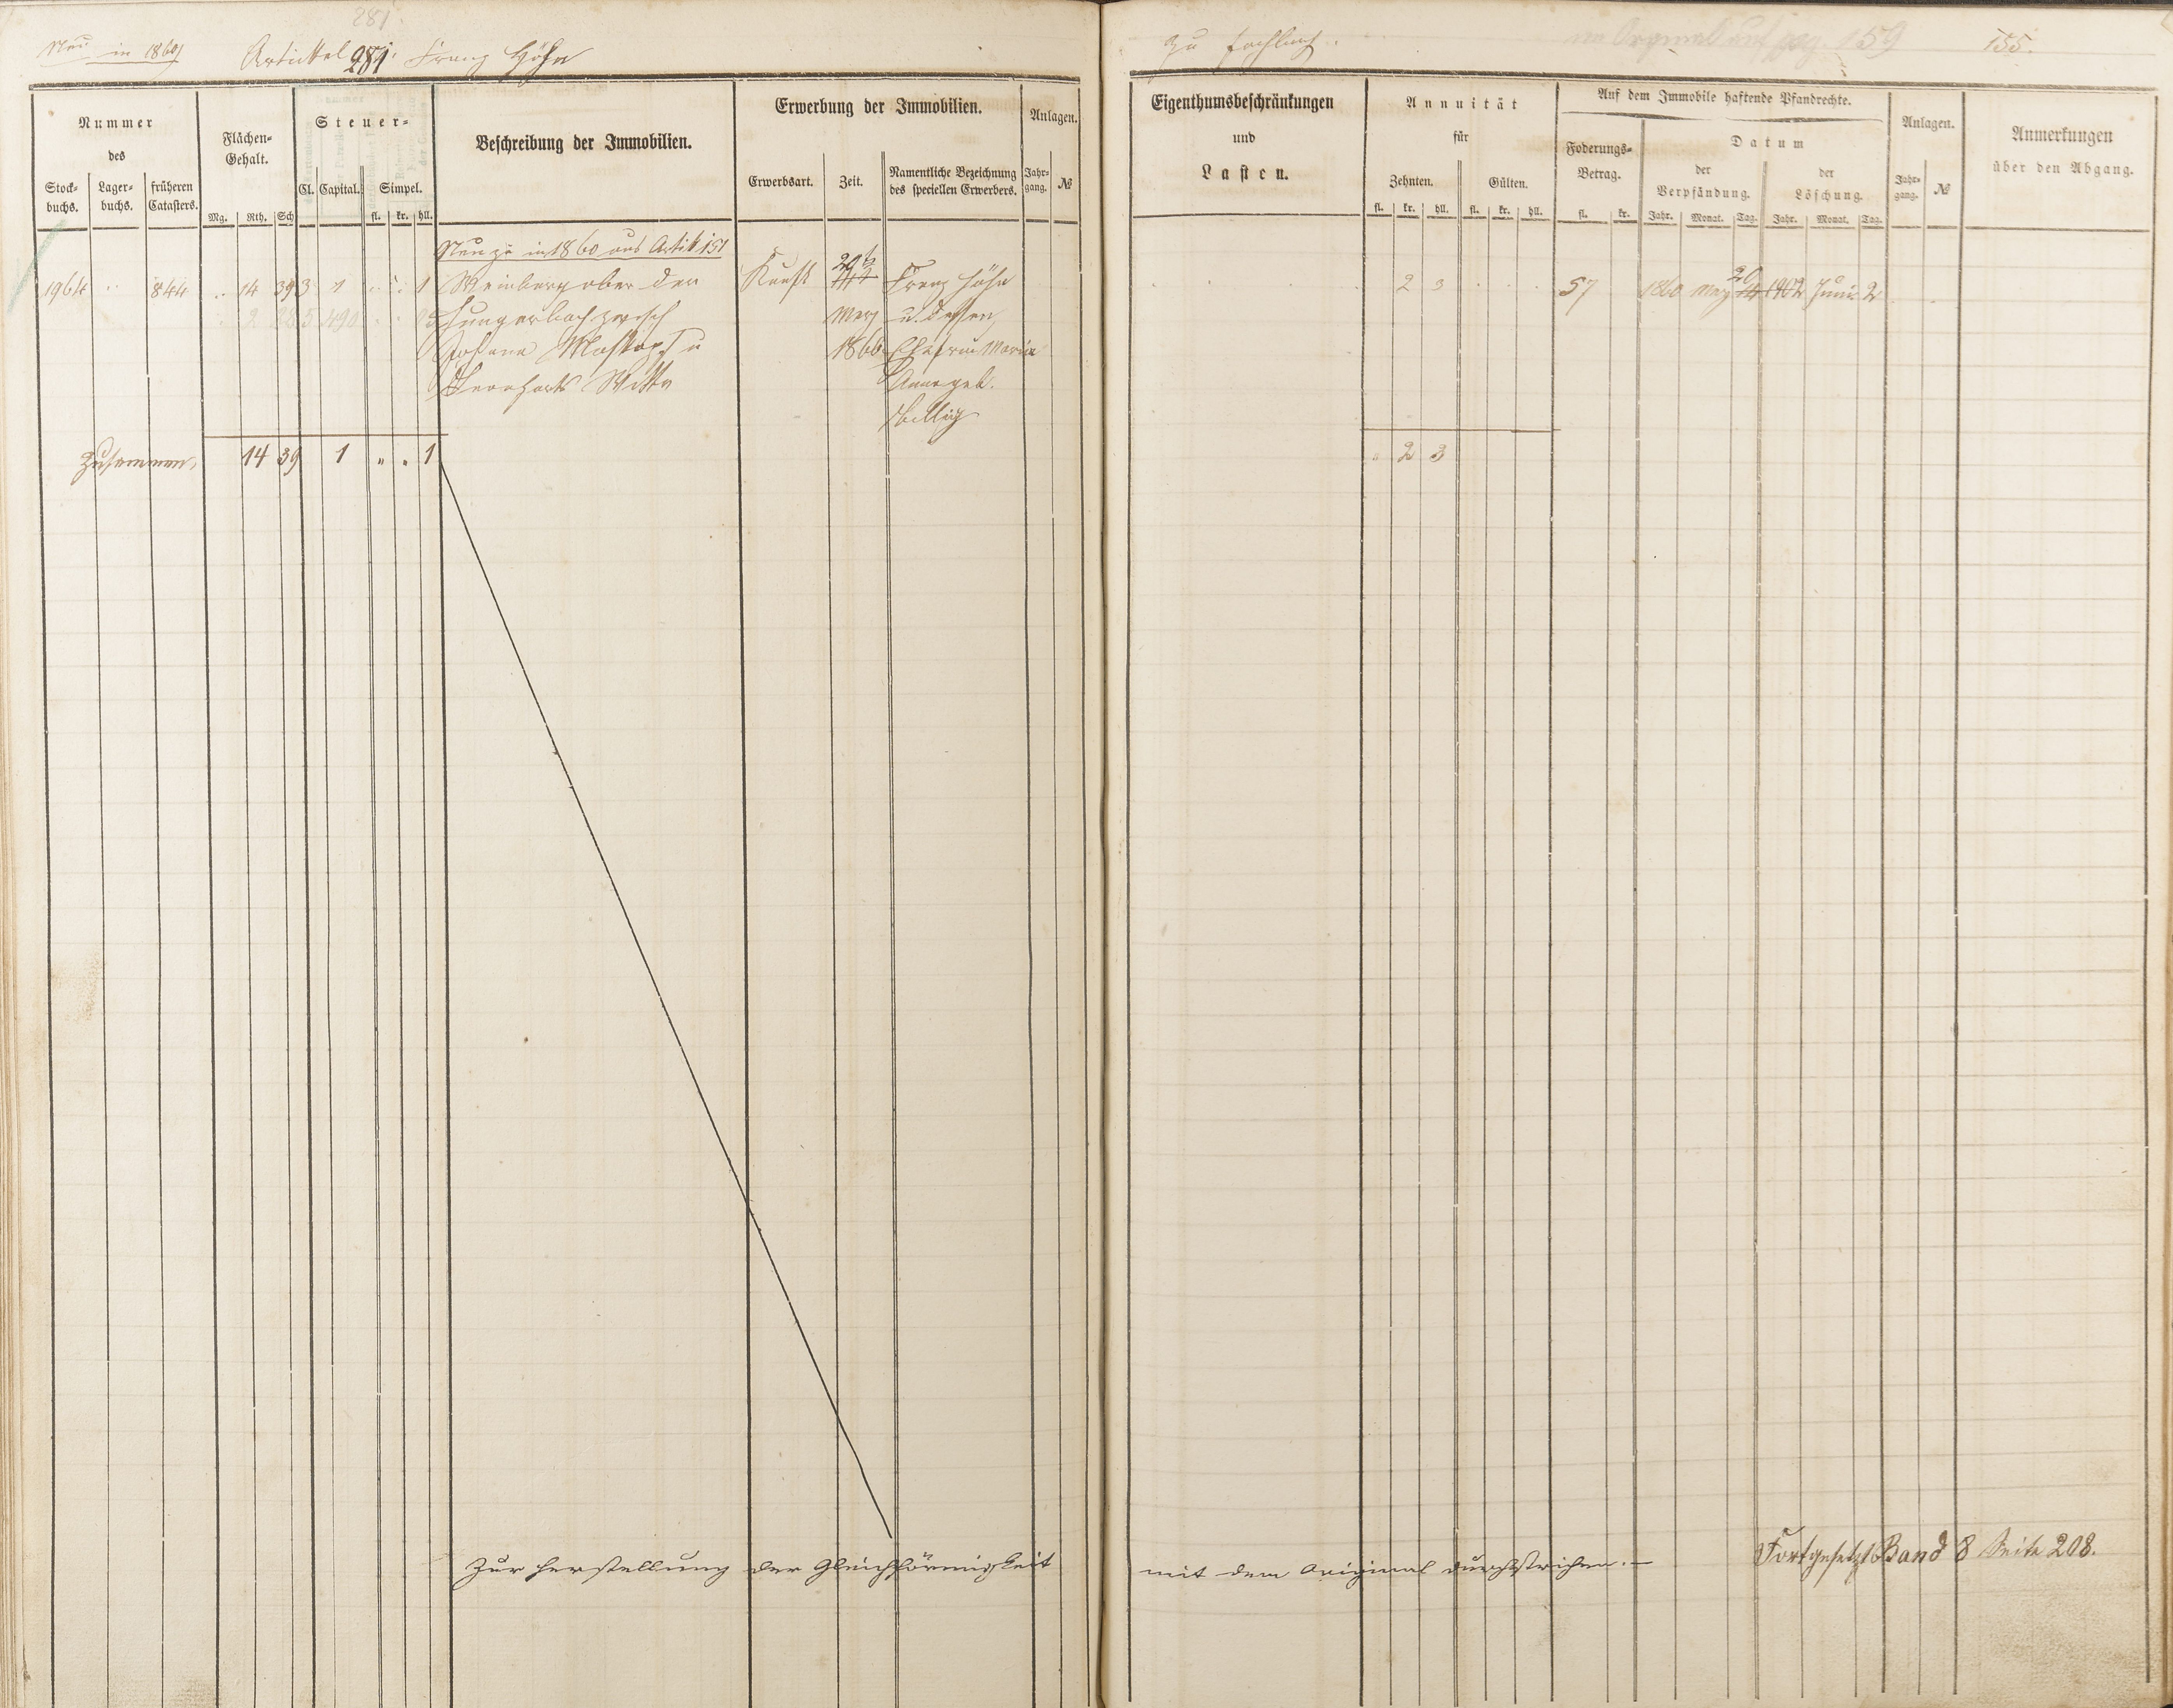 281.
Neu in 1860
Artickel 281. Franz Höhn
Nummer
des
Stock-
buchs.
Lager-
buchs.
früheren
Catasters.
Flächen-
Gehalt.
Mg. Rth. Sch
Steuer-
Cl. Capital. Simpel.
fl. kr. hll.
Beschreibung der Immobilien.
Erwerbung der Immobilien.
Erwerbsart. Zeit. Namentliche Bezeichnung
des speciellen Erwerbers.
Anlagen.
Jahr-
gang. №
Neu zu in 1860 aus Artik 151
1964 " 844 " 14 39 3 1 " " 1 Weinberg ober der
Hungerbach zwisch
Johann Maskopf u
Bernhards Witte
Kauf 20
Merz
1860
Franz Höhn
u. dessen
Ehefrau Maria
Anna geb.
Billig
Zusammen 14 39 1 " " 1
Zur Herstellung der Gleichförmigkeit
zu
im Original auf pag. 159
155.
Eigenthumsbeschränkungen
und
Lasten.
Annuität
für
Zehnten. Gülten.
fl. kr. hll. fl. kr. hll.
Auf dem Immobile haftende Pfandrechte.
Foderungs-
Betrag.
fl. kr.
Datum
der
Verpfändung.
Jahr. Monat. Tag.
der
Löschung.
Jahr. Monat. Tag.
Anlagen.
Jahr-
gang. №
Anmerkungen
über den Abgang.
2 3 57 1860 Merz 20 1902 Juni 2
" 2 3
mit dem Original durchstrichen. —
Fortgesetzt Band 8 Seite 208.